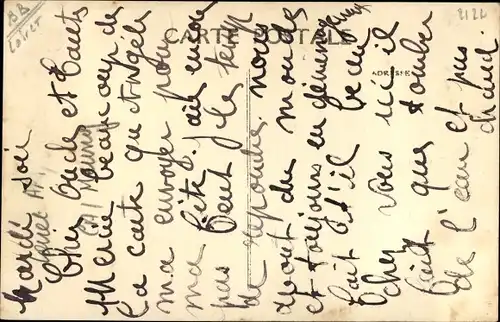 BB
Loiret
2122
CARTE POSTALE
ADRESSE
Mardi soir
Cher Oncle et Tante
Merci beaucoup de
la carte qu et Angèle
ma envoyer pour
ma fête. j'ais encore
pas veut j les temp
de repondre. nous
avont du monde
et toujours en déménag
fait t'il beau
chez vous ici il
fait que tomber
de l'eau et pas
chaud.